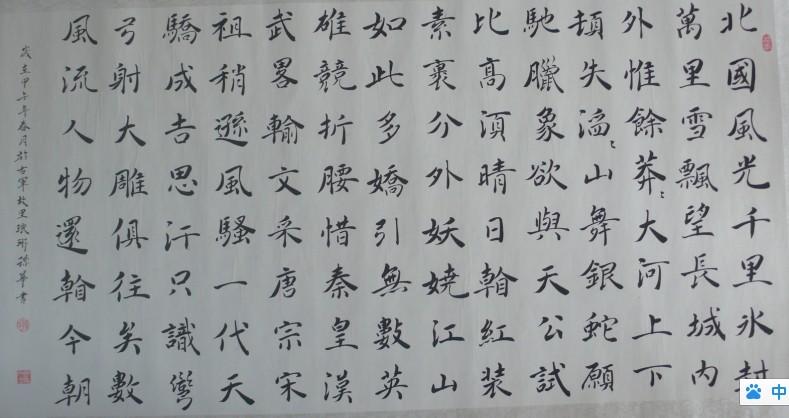 北國風光千里氷封
萬里雪飄望長城内
外惟餘莽々大河上下
頓失滔々山舞銀蛇願
馳臘象欲與天公試
比高須晴日看紅装
素裹分外妖嬈江山
如此多嬌引無數英
雄競折腰惜秦皇漢
武畧輸文采唐宗宋
祖稍遜風騷一代天
驕成吉思汗只識彎
弓射大雕俱往矣數
風流人物還看今朝
歲在甲午年春月於右軍故里琅琊孫書
中